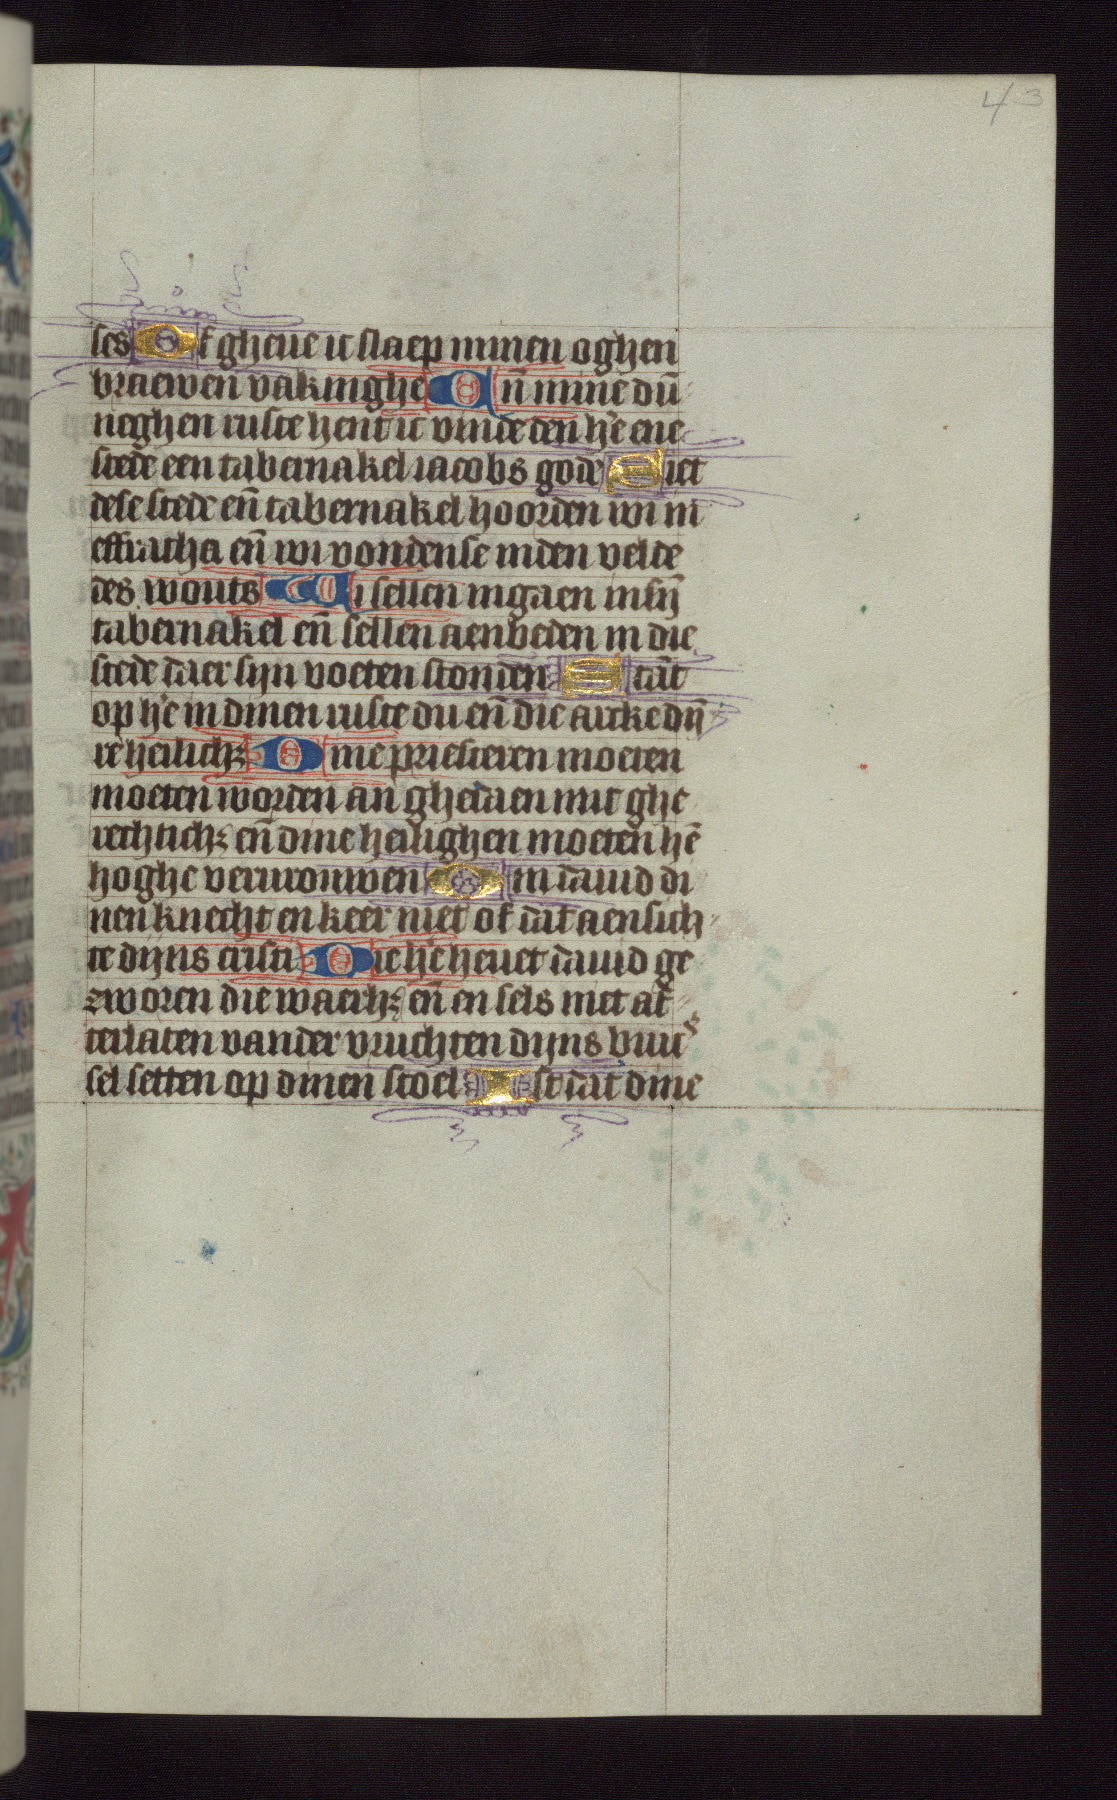 43
ses Of gheue ic slaep minen oghen
vraewen vakinghe En̄ mine dū
neghen ruste hent ic vinde den hē ene
stede een tabernakel iacobs gode Siet
dese stede en̄ tabernakel hoorden wi in
effratha en̄ wi vondense inden velde
des wouts Wi sellen ingaen in sijn̄
tabernakel en̄ sellen aenbeden in die
stede daer sijn voeten stonden Stāt
op hē in dinen ruste du en̄ die arcke dijn̄
re heilichꝫ Dine priesteren moeten
moeten worden an ghedaen mit ghe
rechtichꝫ en̄ dine heilighen moeten hē
hoghe vervrouwen Om dauid di
nen knecht en keer niet of dat aensich
te dijns cristi Die hē heuet dauid ge
zworen die waerhꝫ en̄ en sels niet at̄
terlaten vander vruchten dijns buuc
sel setten op dinen stoel Ist dat dine